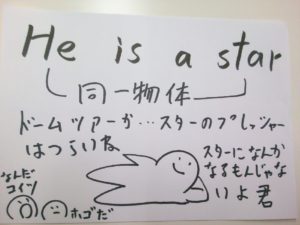 He is a star
同一物体
ドームツアーか…スターのプレッシャー
はつらいね
スターになんか
なるもんじゃな
いよ君
なんだ
コイツ
ホゴだ